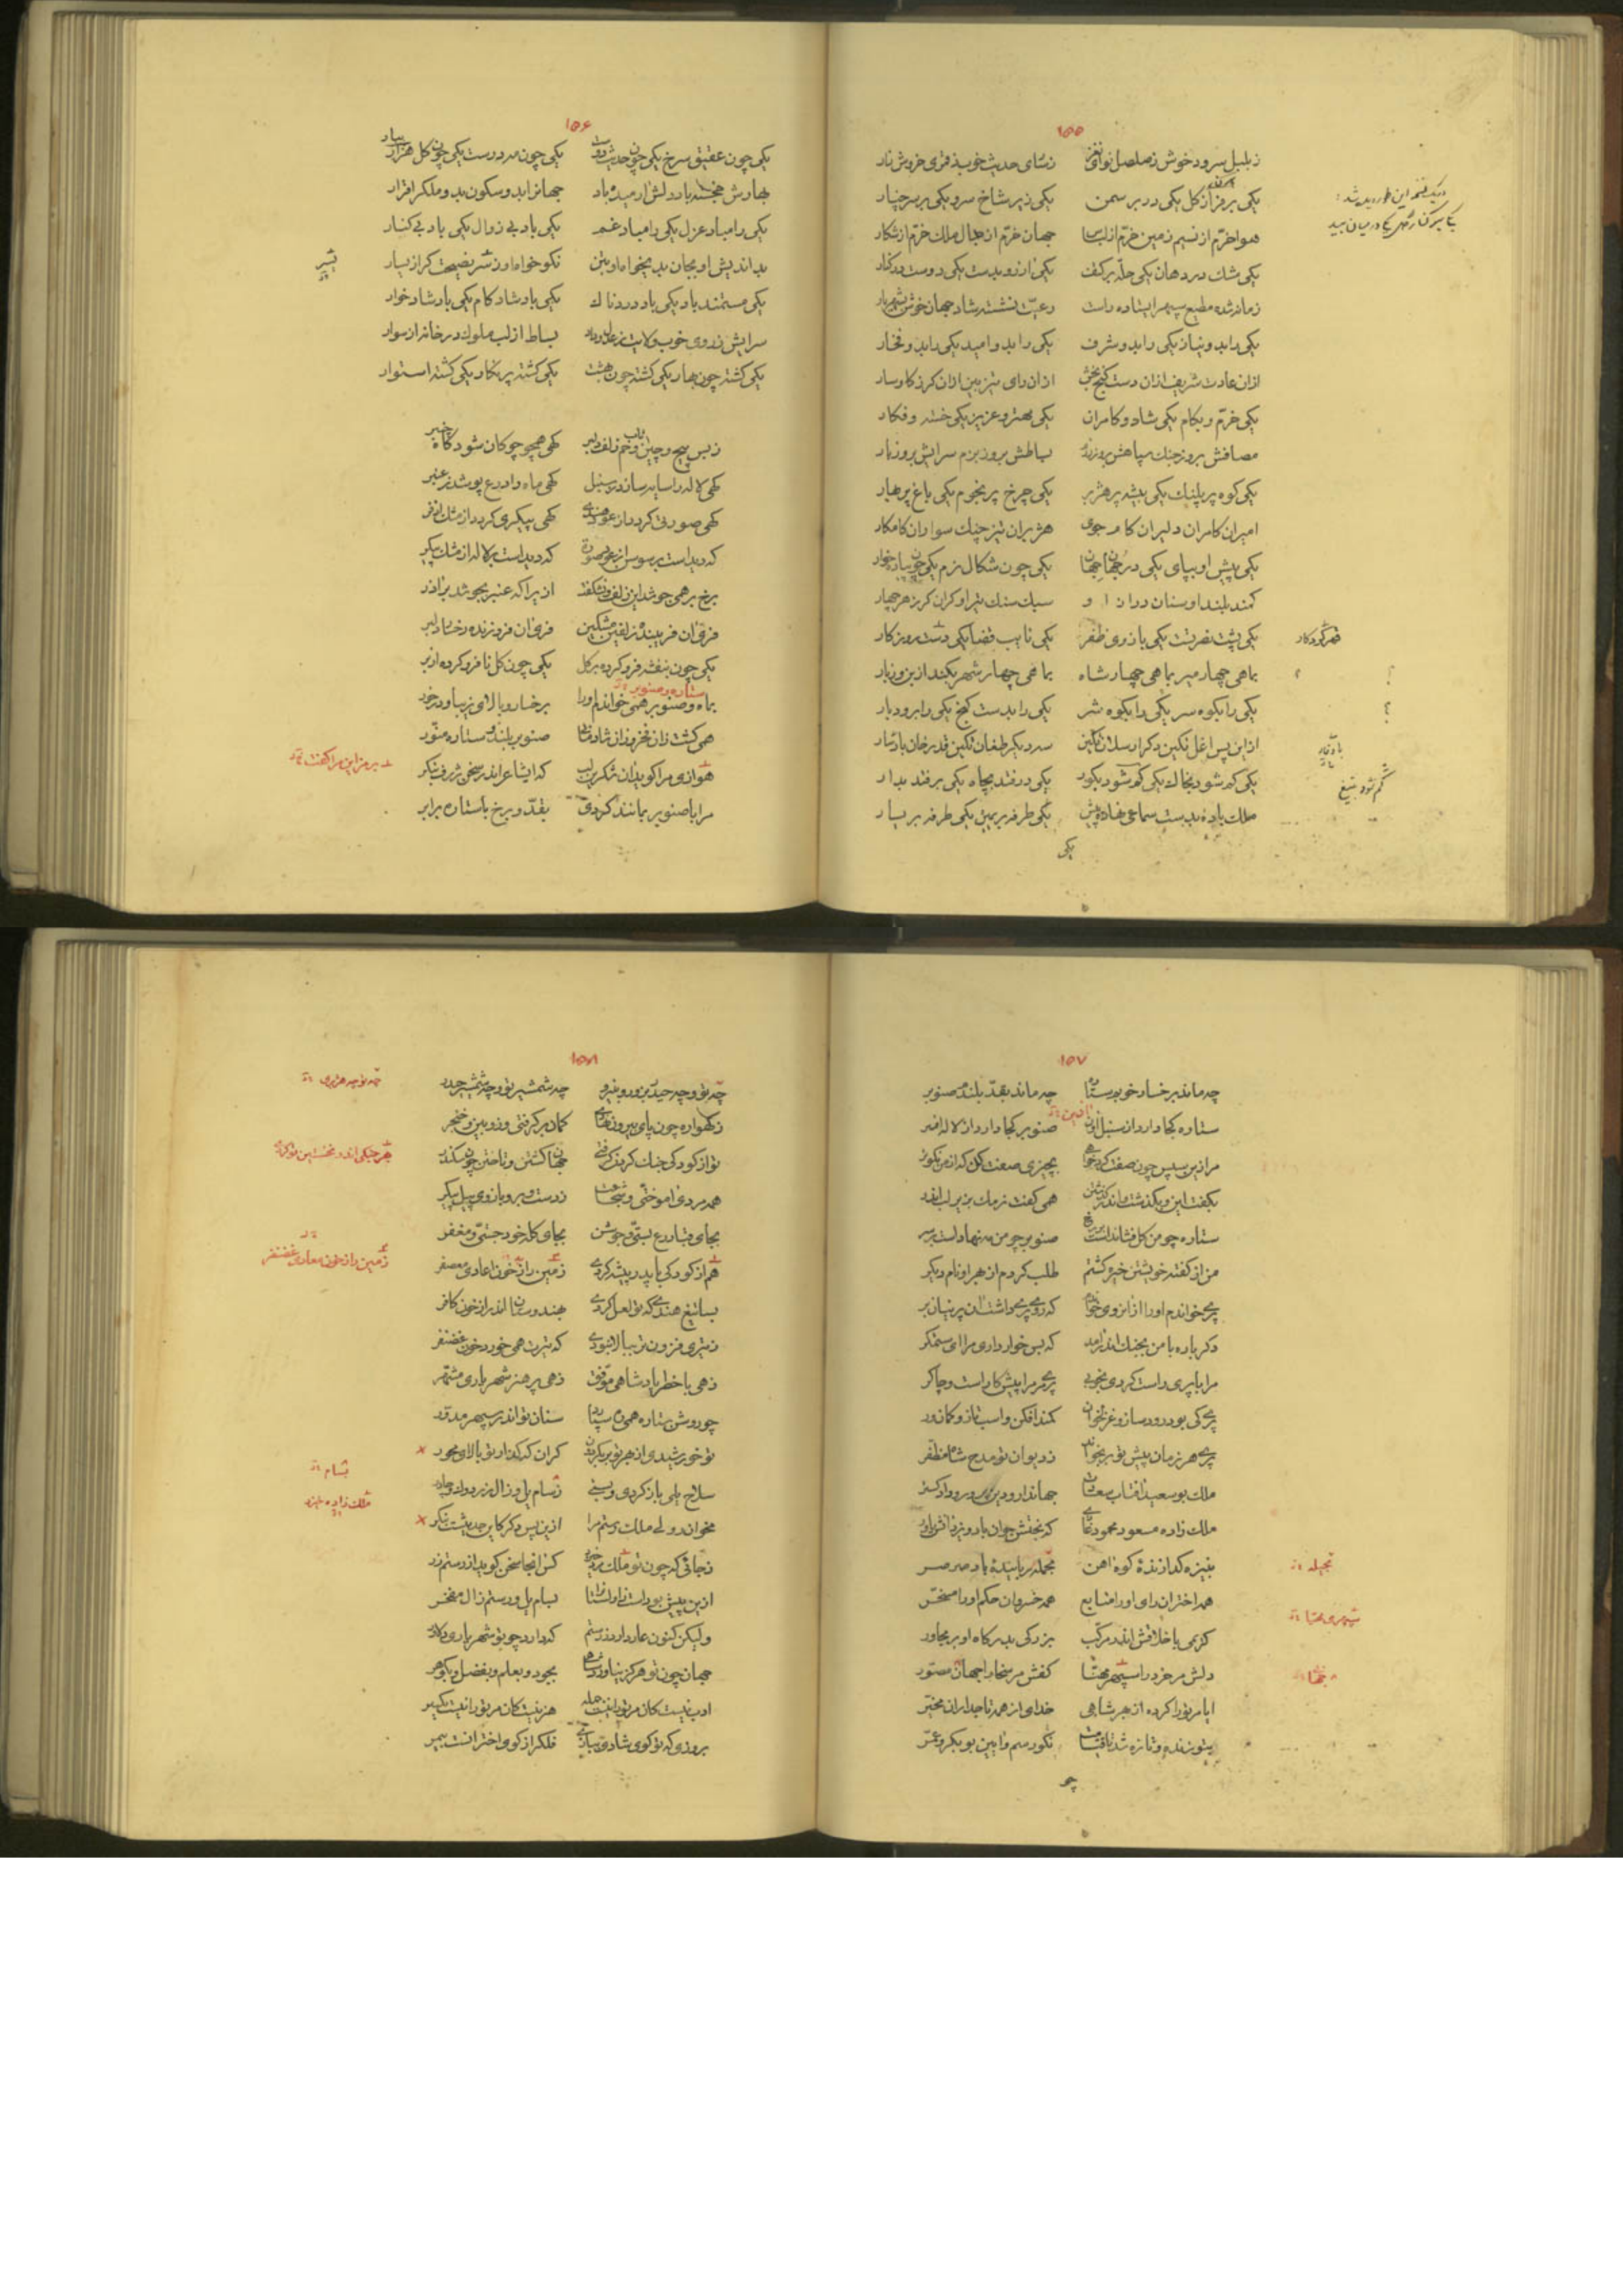 ۱۵۵
زبلبل سرود خوش زصلصل نوای نغز زسای حدیث خوب زقمری خروش زار
یکی بر فراز کل یکی در بر سمن یکی زیر شاخ سرو یکی بر سر چنار
هوا خرم از نسیم زمین خرم از لباس جهان خرم از جمال ملک خرم از شکار
یکی مشک در دهان یکی حله بر کتف یکی ارزو بدست یکی دوست در کنار
زمانه شده مطیع سپهر ایستاده راست رعیت نشسته شاد جهان خوش بشهریار
یکی را بدو نیاز یکی را بدو شرف یکی را بدو امید یکی را بدو فخار
ازان عادت شریف ازان دست کنج بخش ازان رای تیزبین ازان کرز کاوسار
یکی خرم و بکام یکی شاد و کامران یکی مهتر و عزیز یکی خسته و فکار
مصافش بروز جنک سپاهش بروز رزم بساطش بروز بزم سرایش بروز بار
یکی کوه پر پلنک یکی بیشه پر هژبر یکی چرخ پر نجوم یکی باغ پر بهار
امیران کامران دلیران کامجوی هژبران تیزچنک سواران کامکار
یکی پیش او بپای یکی در جهان جهان یکی چون شکال نرم یکی چون پیاده خوار
کمند بلند او سنان دراز او سبک سنک تیر او کران کرز هر چهار
یکی پشت نصرتست یکی بازوی ظفر یکی نایب قضا یکی دست روزکار
بماهی چهار میر بماهی چهار شاه بماهی چهار شهر بکند از بن و زبار
یکی را بکوه سر یکی را بکوه شر یکی را بدست کنج یکی را برود بار
ازین پس اغل نکین دکر ارسلان تکین سه دیکر طغان تکین قدرخان باد سار
یکی کم شود بخاک یکی کم شود بکور یکی در فتد بچاه یکی بر فتد بدار
ملک باده بدست سماعی نهاده پیش یکی طرفه بر یمین یکی طرفه بر یسار
یکی
در یک نسخه این طور دیده شد:
قهر کردکار
بادسار
کم شود بتیغ
۱۵۶
یکی چون عقیق سرخ یکی چون حدیث دوست یکی چون مه درست یکی چون کل هزار
بهارش خجسته باد دلش ارمیده باد جهانرا بدو سکون بدو ملک را قرار
یکی را مباد عزل یکی را مباد غم یکی باد بی زوال یکی باد بی کنار
بد اندیش او بجان بدیخواه او بتن نکو خواه او زشر نصیحت کر از یسار
یکی مستمند باد یکی باد دردناک یکی باد شادکام یکی باد شادخوار
سرایش زروی خوب ولایت زعدل و داد بساط از لب ملوک در خانه از سوار
یکی کشته چون بهار یکی کشته چون بهشت یکی کشته پر نکار یکی کشته استوار
زبس پیچ و چین و تاب و خم زلف دلبر کهی همچو چوکان شود کاه چنبر
کهی لاله را سایه سازد زسنبل کهی ماه را درع پوشد زعنبر
کهی صورتی کردد از عود هندی کهی پیکری کردد از مشک اذفر
که دیدست بر سوسن از عود صورت که دیدست بر لاله از مشک پیکر
برخ بر همی جوشد این زلف نشکفت ازیرا که عنبر بجوشد بر اذر
فری ان فریبنده زلفین مشکین فری ان فروزنده رخسار دلبر
یکی چون بنفشه فرو کرده بر کل یکی چون کل نا فرو کرده از بر
بماه و صنوبر همی خواندم اورا برخسار و بالای زیبا و در خور
همی کشت زان فخر و زان شادمانا صنوبر بلند و ستاره منور
هوازی مرا کوید ان شکرین لب که ای شاعر اندر سخن ژرف بنکر
مرا با صنوبر بمانند کردی بقد و برخ با ستاره برابر
ستاره و صنوبر
بشر
۱۵۷
چه ماند برخسار خوبم ستاره چه ماند بقد بلندم صنوبر
ستاره کجا دارد از سنبل ایین صنوبر کجا دارد از لاله افسر
مرا زین سپس چون صفت کرد خواهی بچیزی صفت کن که از من نکوتر
بکفت این و بکذشت و اندر کذشتن همی کفت نرمک بزیر لب اندر
ستاره چو من کل فشاندست بر رخ صنوبر چو من مه نهادست بر سر
من از کفته خویشتن خیره کشتم طلب کردم از بهر او نام دیکر
پری خواندم اورا از انروی خوانم که روی پری داشت ان پرنیان بر
دکر باره با من بجنک اندر امد که بس خوار داری مرا ای ستمکر
مرا با پری راست کردی بخوبی پری مر مرا پیشکار است و چاکر
پری کی بود رود ساز و غزلخوان کمند افکن و اسب تاز و کمان ور
پری هر زمان پیش تو بر نخواند زدیوان تو مدح شاه مظفر
ملک بو سعید افتاب سعادت جهاندار و دین پرور و داد کستر
ملک زاده مسعود محمود غازی که بختش جوان باد و یزدانش یاور
بنیزه کذارندهٔ کوه اهن بحمله ربایندهٔ باد صرصر
همه اختران رای اورا متابع همه خسروان حکم اورا مسخر
کریمی با خلاقش اندر مرکب بزرکی بدرکاه او بر مجاور
دلش مر خرد را سپهر مهنا کفش مر سخا را جهان مصور
ایا مر ترا کرده از بهر شاهی خدای از همه تاجداران مخیر
بتو زنده و تازه شد تا قیامت نکو رسم و ایین بو بکر و عمر
چه
بحیله
۱۵۸
چه تو و چه حیدر بزور و بنیرو چه شمشیر تو و چه شمشیر حیدر
زکهواره چون پای بیرون نهادی کمان بر کرفتی و زوبین و خنجر
تو از کودکی جنک کردن کرفتی جهان کشتن و تاختن چون سکندر
همه مردی اموختی و شجاعت زدست و بر و بازوی پیل پیکر
بجای قبا درع بستی و جوشن بجای کله خود جستی و مغفر
هم از کودکی با پدر پیشه کردی زمین را زخون اعادی معصفر
بسا تیغ هندی که تو لعل کردی بهندوستان اندر از خون کافر
زتیری فزونتر ببالا نبودی که تیرت همی خورد خون غضنفر
زهی با خطر پادشاهی موفق زهی پر هنر شهریاری مشهر
چو روشن ستاره همی ره سپارد سنان تو اندر سپهر مدور
تو خورشیدی از بهر تو بر بکردون
سلاح یلی باز کردی و بستی زسام یل و زال زر
مخواندولی ملک رستم مرا ازین پس دکر کاین حدیثست منکر
زجائی که چون تو ملک مرد خیزد کس انجا سخن کوید از رستم زر
ازین پیش بودست زاولستان را بسام یل و رستم زال مفخر
ولیکن کنون عار دارد زرستم که دارد چو تو شهریاری دلاور
جهان چون تو هرکز نیاورد شاهی بجود و بعلم و بفضل و بکوهر
ادب نیست کان مر ترا نیست جمله هنر نیست کان مر ترا نیست یکسر
بروزی که تو کوی شادی ببازی فلک را زکوی اختر انست بی مر
چه تو چه هژبری
زمین را زخون معادی غضنفر
بسام
ملک زاده خیزد